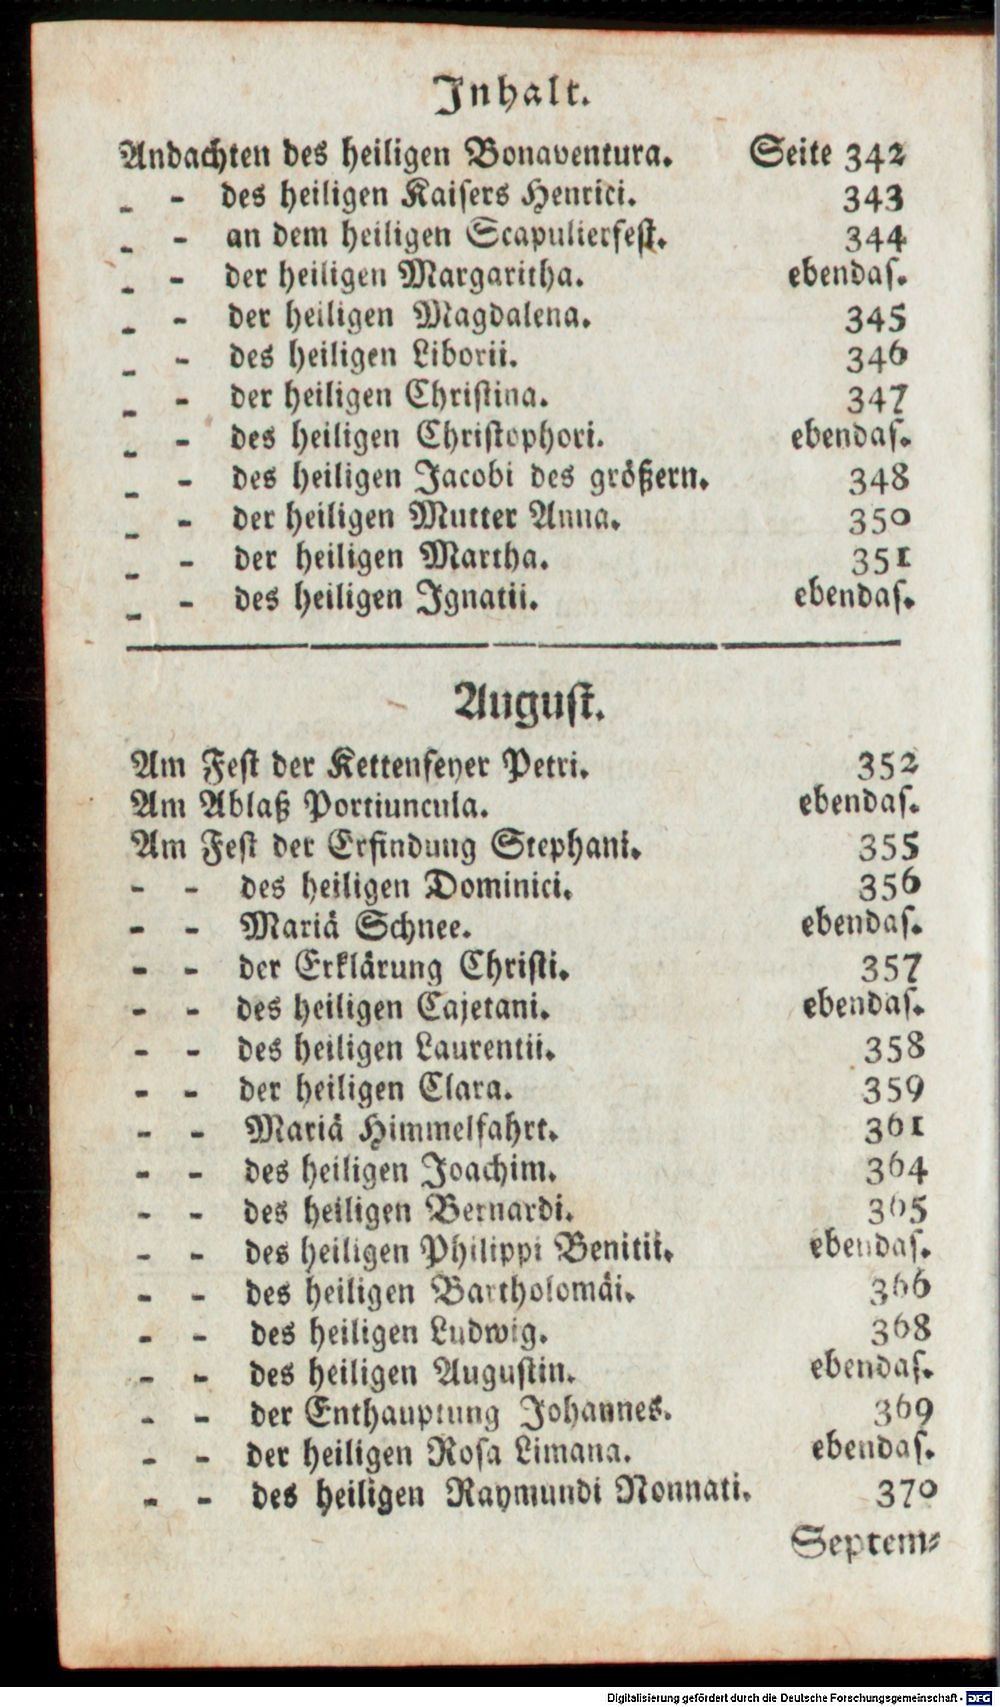 Inhalt.
Andachten des heiligen Bonaventura. Seite 342
- - des heiligen Kaisers Henrici. 343
- - an dem heiligen Scapulierfest. 344
- - der heiligen Margaritha. ebendas.
- - der heiligen Magdalena. 345
- - des heiligen Liborii. 346
- - der heiligen Christina. 347
- - des heiligen Christophori. ebendas.
- - des heiligen Jacobi des größern. 348
- - der heiligen Mutter Anna. 350
- - der heiligen Martha. 351
- - des heiligen Ignatii. ebendas.
August.
Am Fest der Kettenfeyer Petri. 352
Am Ablaß Portiuncula. ebendas.
Am Fest der Erfindung Stephani. 355
- - des heiligen Dominici. 356
- - Mariä Schnee. ebendas.
- - der Erklärung Christi. 357
- - des heiligen Cajetani. ebendas.
- - des heiligen Laurentii. 358
- - der heiligen Clara. 359
- - Mariä Himmelfahrt. 361
- - des heiligen Joachim. 364
- - des heiligen Bernardi. 365
- - des heiligen Philippi Benitii. ebendas.
- - des heiligen Bartholomäi. 366
- - des heiligen Ludwig. 368
- - des heiligen Augustin. ebendas.
- - der Enthauptung Johannes. 369
- - der heiligen Rosa Limana. ebendas.
- - des heiligen Raymundi Nonnati. 370
Septem-
Digitalisierung gefördert durch die Deutsche Forschungsgemeinschaft - DFG